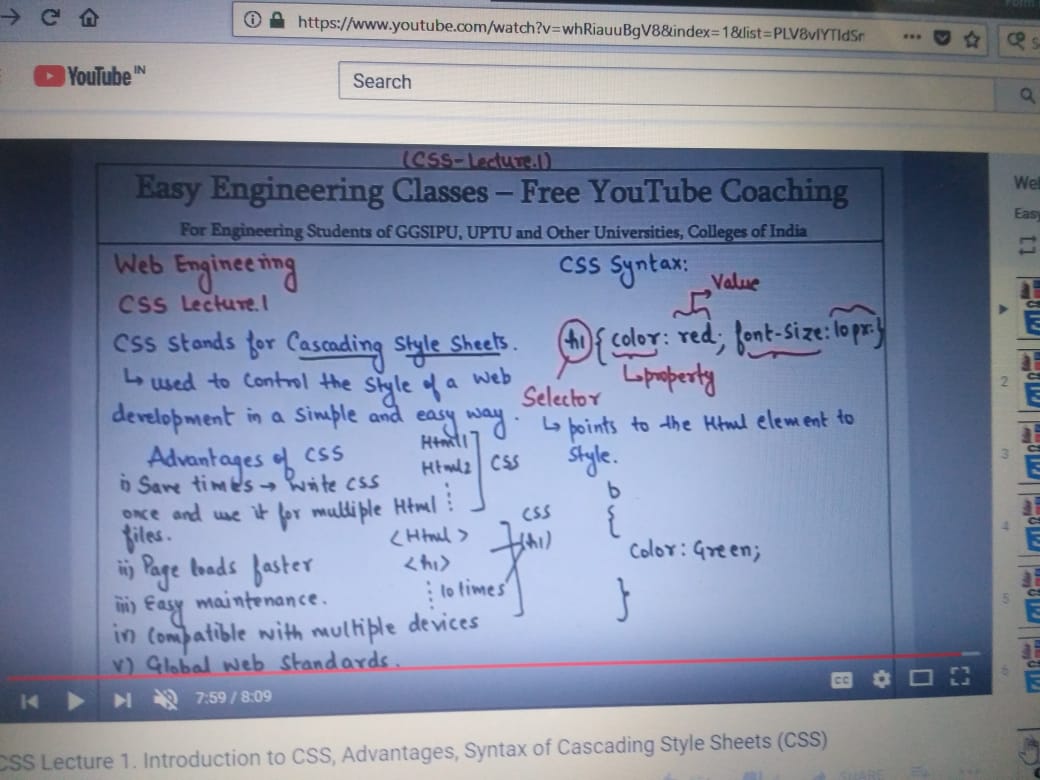 https://www.youtube.com/watch?v=whRiauuBgV8&index=1&list=PLV8vIYTIdSr
YouTube IN
Search
(CSS-Lecture.1)
Easy Engineering Classes – Free YouTube Coaching
For Engineering Students of GGSIPU, UPTU and Other Universities, Colleges of India
Web Engineering
CSS Lecture.1
CSS stands for Cascading Style Sheets.
↳ used to control the style of a web
development in a simple and easy way.
Advantages of CSS
i) Save times → Write CSS
once and use it for multiple Html
files.
ii) Page loads faster
iii) Easy maintenance.
iv) Compatible with multiple devices
v) Global web standards.
Html1
Html2
CSS
<Html>
<h1>
10 times
CSS
(h1)
CSS Syntax:
Value
h1 {color: red; font-size: 10px;}
↳ property
Selector
↳ points to the Html element to
style.
b
{
Color: Green;
}
7:59 / 8:09
CC
CSS Lecture 1. Introduction to CSS, Advantages, Syntax of Cascading Style Sheets (CSS)
SHARE
Easy
2
3
4
5
6